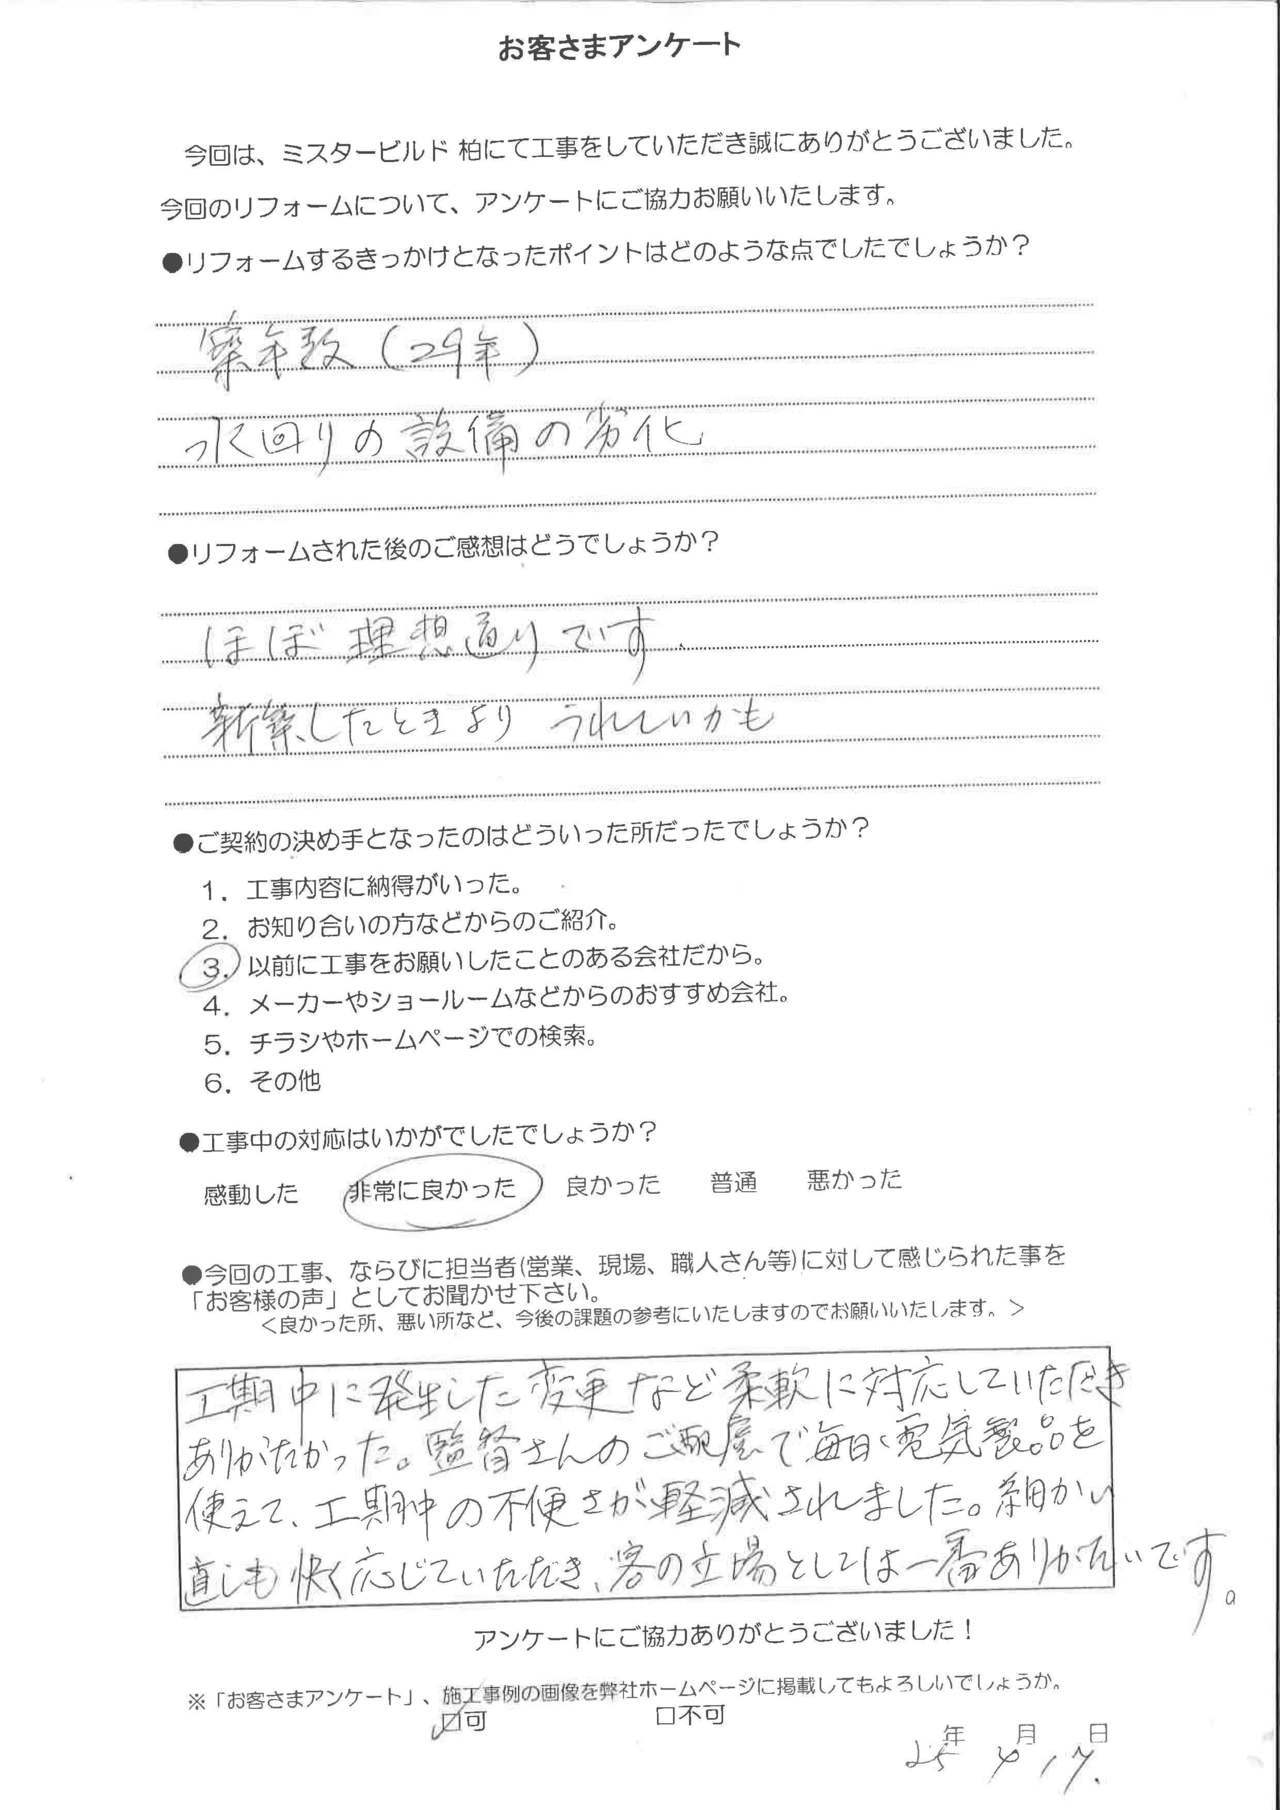 お客さまアンケート
今回は、ミスタービルド 柏にて工事をしていただき誠にありがとうございました。
今回のリフォームについて、アンケートにご協力お願いいたします。
●リフォームするきっかけとなったポイントはどのような点でしたでしょうか？
築年数（29年）
水回りの設備の劣化
●リフォームされた後のご感想はどうでしょうか？
ほぼ理想通りです
新築したときより うれしいかも
●ご契約の決め手となったのはどういった所だったでしょうか？
1．工事内容に納得がいった。
2．お知り合いの方などからのご紹介。
3．以前に工事をお願いしたことのある会社だから。
4．メーカーやショールームなどからのおすすめ会社。
5．チラシやホームページでの検索。
6．その他
●工事中の対応はいかがでしたでしょうか？
感動した 非常に良かった 良かった 普通 悪かった
●今回の工事、ならびに担当者(営業、現場、職人さん等)に対して感じられた事を
「お客様の声」としてお聞かせ下さい。
＜良かった所、悪い所など、今後の課題の参考にいたしますのでお願いいたします。＞
工期中に発生した変更など柔軟に対応していただき
ありがたかった。監督さんのご配慮で毎日、電気製品を
使えて、工期中の不便さが軽減されました。細かい
直しも快く応じていただき、客の立場としては一番ありがたいです。
アンケートにご協力ありがとうございました！
※「お客さまアンケート」、施工事例の画像を弊社ホームページに掲載してもよろしいでしょうか。
☑可 □不可
25年 4月 17日